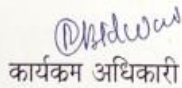 कार्यकम अधिकारी